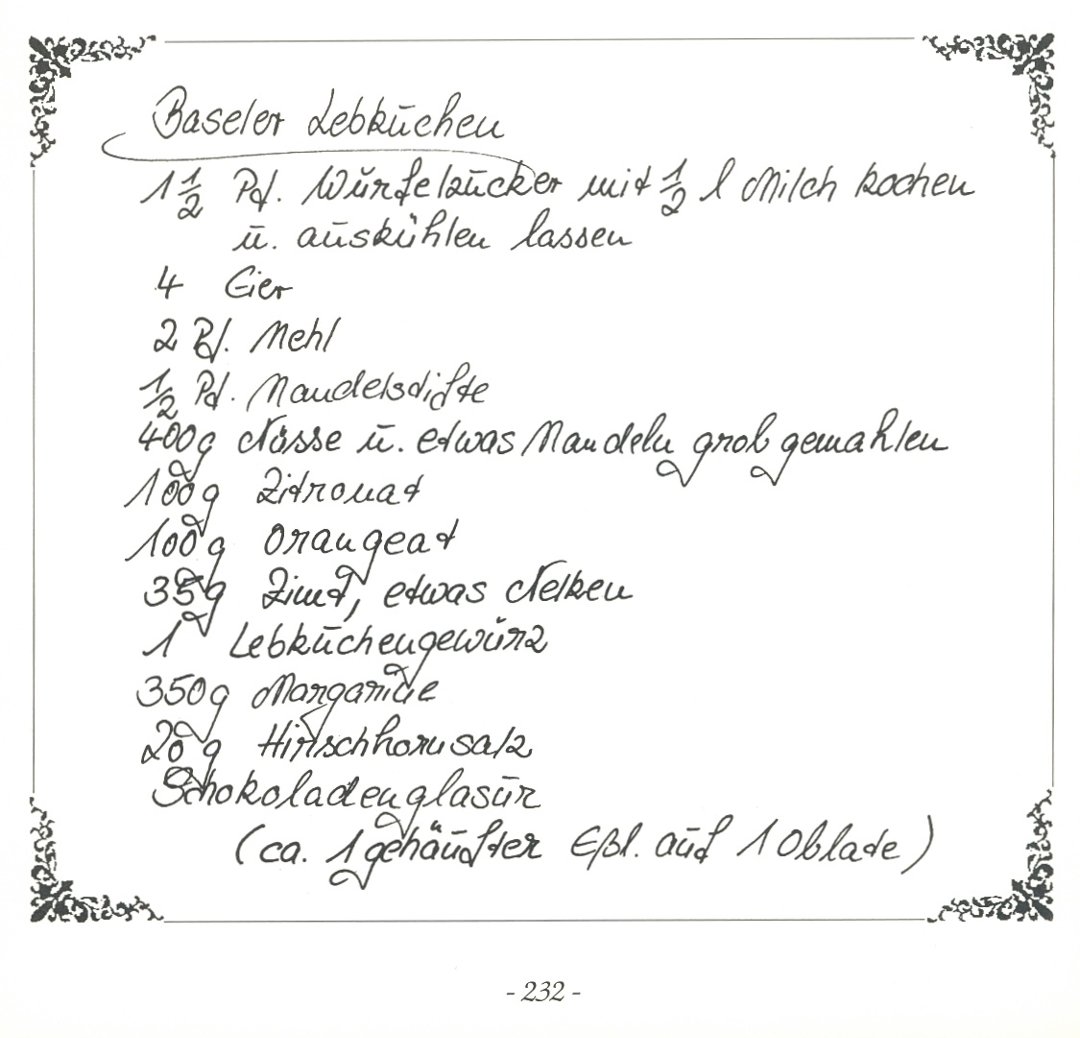 Baseler Lebkuchen
1 1/2 Pf. Würfelzucker mit 1/2 l Milch kochen
u. auskühlen lassen
4 Eier
2 Pf. Mehl
1/2 Pf. Mandelstifte
400g Nüsse u. etwas Mandeln grob gemahlen
100g Zitronat
100g Orangeat
35g Zimt, etwas Nelken
1 Lebkuchengewürz
350g Margarine
20g Hirschhornsalz
Schokoladenglasur
(ca. 1 gehäufter Eßl. auf 1 Oblate)
- 232 -